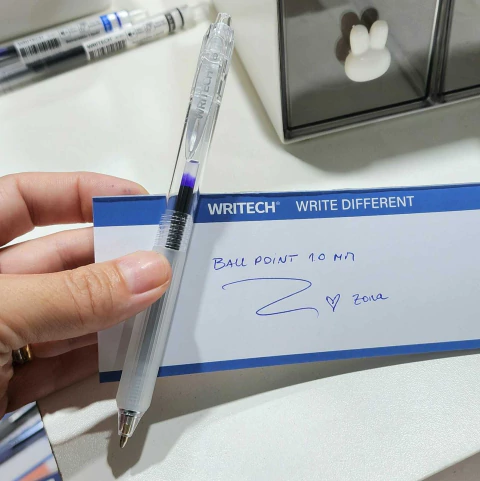 WRITECH
WRITECH
WRITECH® WRITE DIFFERENT
BALL POINT 1.0 MM
Zora